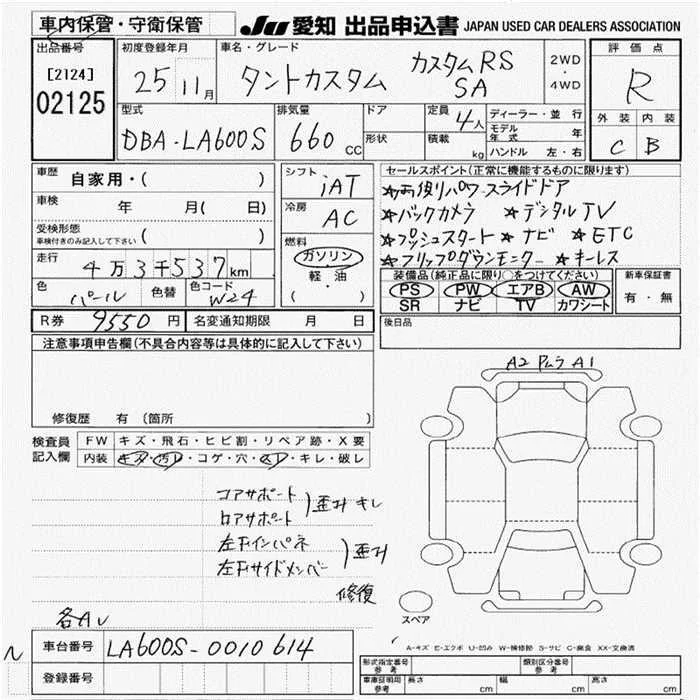 車内保管・守衛保管
JU 愛知 出品申込書 JAPAN USED CAR DEALERS ASSOCIATION
出品番号 [2124] 02125
初度登録年月 25 11月
車名・グレード タントカスタム カスタムRS SA
2WD・4WD
評価点 R
外装 C 内装 B
型式 DBA-LA600S
排気量 660 CC
ドア
形状
定員 4人
積載 kg
ディーラー・並行
モデル年式 年
ハンドル 左・右
車歴 自家用・( )
車検 年 月( 日)
受検形態 車検付きのみ記入して下さい ( )
走行 4万3千537km
色 パール 色替 色コード W24
シフト iAT
冷房 AC
燃料 ガソリン・軽・油 ( )
セールスポイント(正常に機能するものに限ります)
☆両後りパワースライドドア
☆バックカメラ ☆デジタルTV
☆プッシュスタート ☆ナビ ☆ETC
☆フリップダウンモニター ☆キーレス
装備品(純正品に限り○をつけてください)
PS PW エアB AW
SR ナビ TV カワシート
新車保証書 有・無
R券 9550円 名変通知期限 月 日
後日品
注意事項申告欄(不具合内容等は具体的に記入して下さい)
修復歴 有 (箇所 )
検査員記入欄
FW キズ・飛石・ヒビ割・リペア跡・X要
内装 キズ・汚レ・コゲ・穴・スレ・キレ・破レ
コアサポート
ロアサポート )歪み キレ
左右インパネ
左右サイドメンバー )歪み
修復
各AU
A2 Pムラ A1
スペア
車台番号 LA600S-0010614
登録番号
A-キズ E-エクボ U-凹み W-補修跡 S-サビ C-腐食 XX-交換済
形式指定番号 参考 類別区分番号 参考
車庫証明用 参考 長さ cm 幅 cm 高さ cm